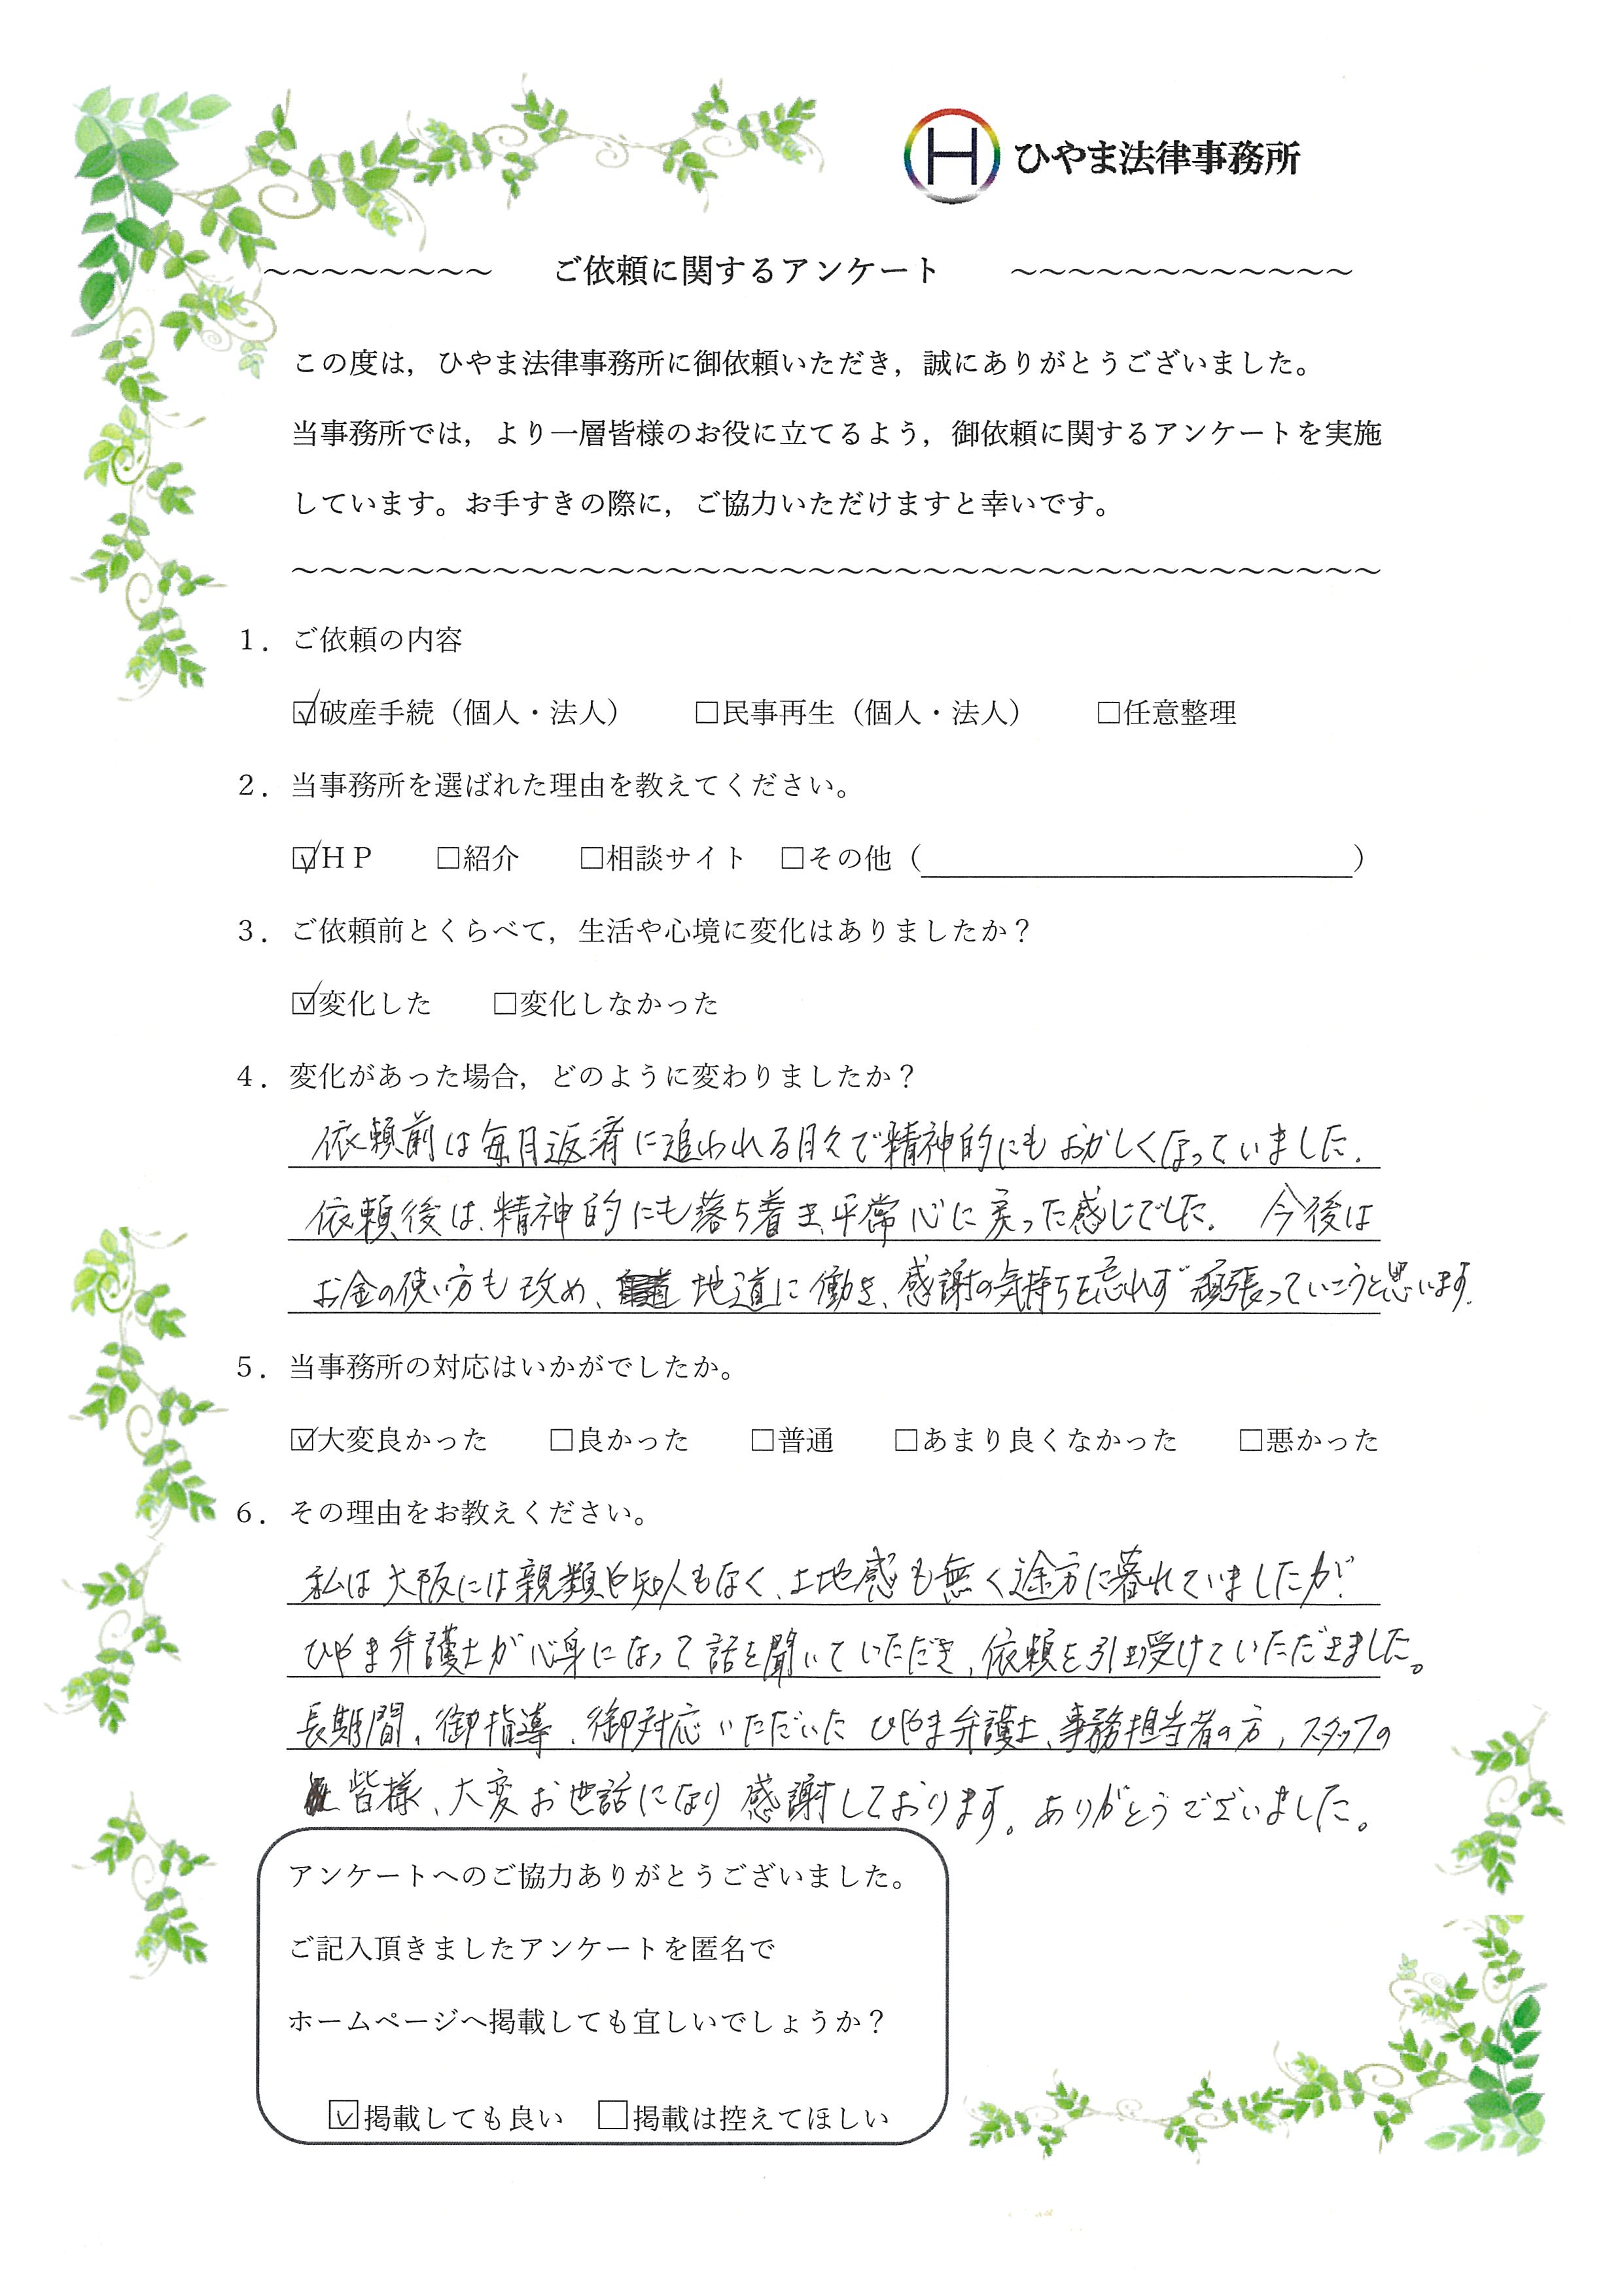 H ひやま法律事務所
～～～～～～～～ ご依頼に関するアンケート ～～～～～～～～～～～～
この度は，ひやま法律事務所に御依頼いただき，誠にありがとうございました。
当事務所では，より一層皆様のお役に立てるよう，御依頼に関するアンケートを実施
しています。お手すきの際に，ご協力いただけますと幸いです。
～～～～～～～～～～～～～～～～～～～～～～～～～～～～～～～～～～～～～～
１．ご依頼の内容
☑破産手続（個人・法人） □民事再生（個人・法人） □任意整理
２．当事務所を選ばれた理由を教えてください。
☑ＨＰ □紹介 □相談サイト □その他（　　　　　　）
３．ご依頼前とくらべて，生活や心境に変化はありましたか？
☑変化した □変化しなかった
４．変化があった場合，どのように変わりましたか？
依頼前は毎月返済に追われる日々で精神的にもおかしくなっていました。
依頼後は、精神的にも落ち着き、平常心に戻った感じでした。 今後は
お金の使い方も改め、地道に働き、感謝の気持ちを忘れず頑張っていこうと思います。
５．当事務所の対応はいかがでしたか。
☑大変良かった □良かった □普通 □あまり良くなかった □悪かった
６．その理由をお教えください。
私は大阪には親類や知人もなく、土地感も無く途方に暮れていましたが、
ひやま弁護士が心身になって話を聞いていただき、依頼を引き受けていただきました。
長期間、御指導、御対応いただいたひやま弁護士、事務担当者の方、スタッフの
皆様、大変お世話になり感謝しております。ありがとうございました。
アンケートへのご協力ありがとうございました。
ご記入頂きましたアンケートを匿名で
ホームページへ掲載しても宜しいでしょうか？
☑掲載しても良い □掲載は控えてほしい